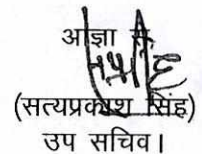 आज्ञा से
(सत्यप्रकाश सिंह)
उप सचिव।